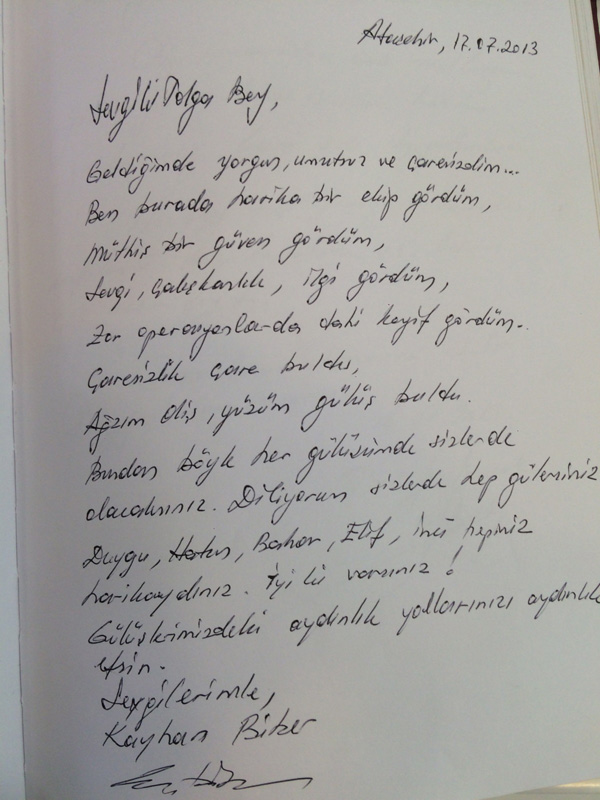 Ataşehir, 17.07.2013
Sevgili Tolga Bey,
Geldiğimde yorgun, umutsuz ve çaresizdim...
Ben burada harika bir ekip gördüm,
Müthiş bir güven gördüm,
Sevgi, çalışkanlık, ilgi gördüm,
Zor operasyonlarda dahi keyif gördüm..
Çaresizlik çare buldu,
Ağzım diş, yüzüm gülüş buldu.
Bundan böyle her gülüşümde sizlerde
olacaksınız. Diliyorum sizlerde hep gülersiniz
Duygu, Hatun, Bahar, Elif, inci hepiniz
harikaydınız. İyi ki varsınız!
Gülüşlerimizdeki aydınlık yollarınızı aydınlık
etsin.
Sevgilerimle,
Kayhan Biber